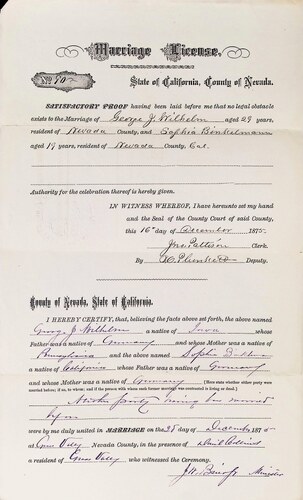 Marriage License.
No. 90
State of California, County of Nevada.
SATISFACTORY PROOF having been laid before me that no legal obstacle
exists to the Marriage of George J. Wilhelm aged 29 years,
resident of Nevada County, and Sophia Binkelman
aged 19 years, resident of Nevada County, Cal.
Authority for the celebration thereof is hereby given.
IN WITNESS WHEREOF, I have hereunto set my hand
and the Seal of the County Court of said County,
this 16th day of December 1875
Jno Pattison Clerk.
By Deputy.
County of Nevada, State of California.
I HEREBY CERTIFY, that, believing the facts above set forth, the above named
George J. Wilhelm a native of Iowa whose
Father was a native of Germany and whose Mother was a native of
Pennsylvania and the above named Sophia
a native of California whose Father was a native of Germany
and whose Mother was a Native of Germany (Here state whether either party were married
before; if so, to whom; and if the person with whom such former marriage was contracted is living or dead.)
Neither party having been married
before
were by me duly united in MARRIAGE on the day of December 1875
at Grass Valley Nevada County, in the presence of
a resident of Grass Valley who witnessed the Ceremony.
Minister